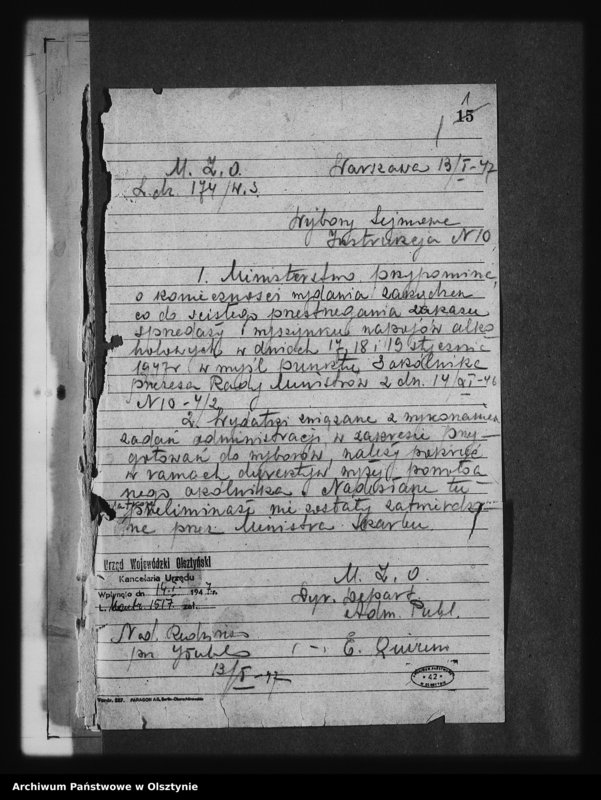 1
15
M. Z. O.
Warszawa 13/I-47
L.dz. 174/W.S
Wybory Sejmowe
Instrukcja N10
1. Ministerstwo przypomina
o konieczności wydania zarządzeń
co do ścisłego przestrzegania zakazu
sprzedaży i wyszynku napojów alko
holowych w dniach 17, 18 i 19 stycznia
1947r w myśl punktu 3 okólnika
Prezesa Rady Ministrów z dn. 14/XI-46
N10-4/2
2. Wydatki związane z wykonaniem
zadań administracji w zakresie przy-
gotowań do wyborów należy pokryć
w ramach dyrektyw wyżej powoła
nego okólnika. Nadesłane tu
preliminarze nie zostały zatwierdzo
ne przez Ministra Skarbu.
Urząd Wojewódzki Olsztyński
Kancelaria Urzędu
Wpłynęło dn 14.I. 1947 r.
L. 1517 zał.
M. Z. O.
Dyr. Depart.
Adm. Publ.
Nad. Rudzińs
prz
(-) E. Quirini
13/I-47
42
Vordr. 227. PARAGON A.G. Berlin-Oberschöneweide
Archiwum Państwowe w Olsztynie